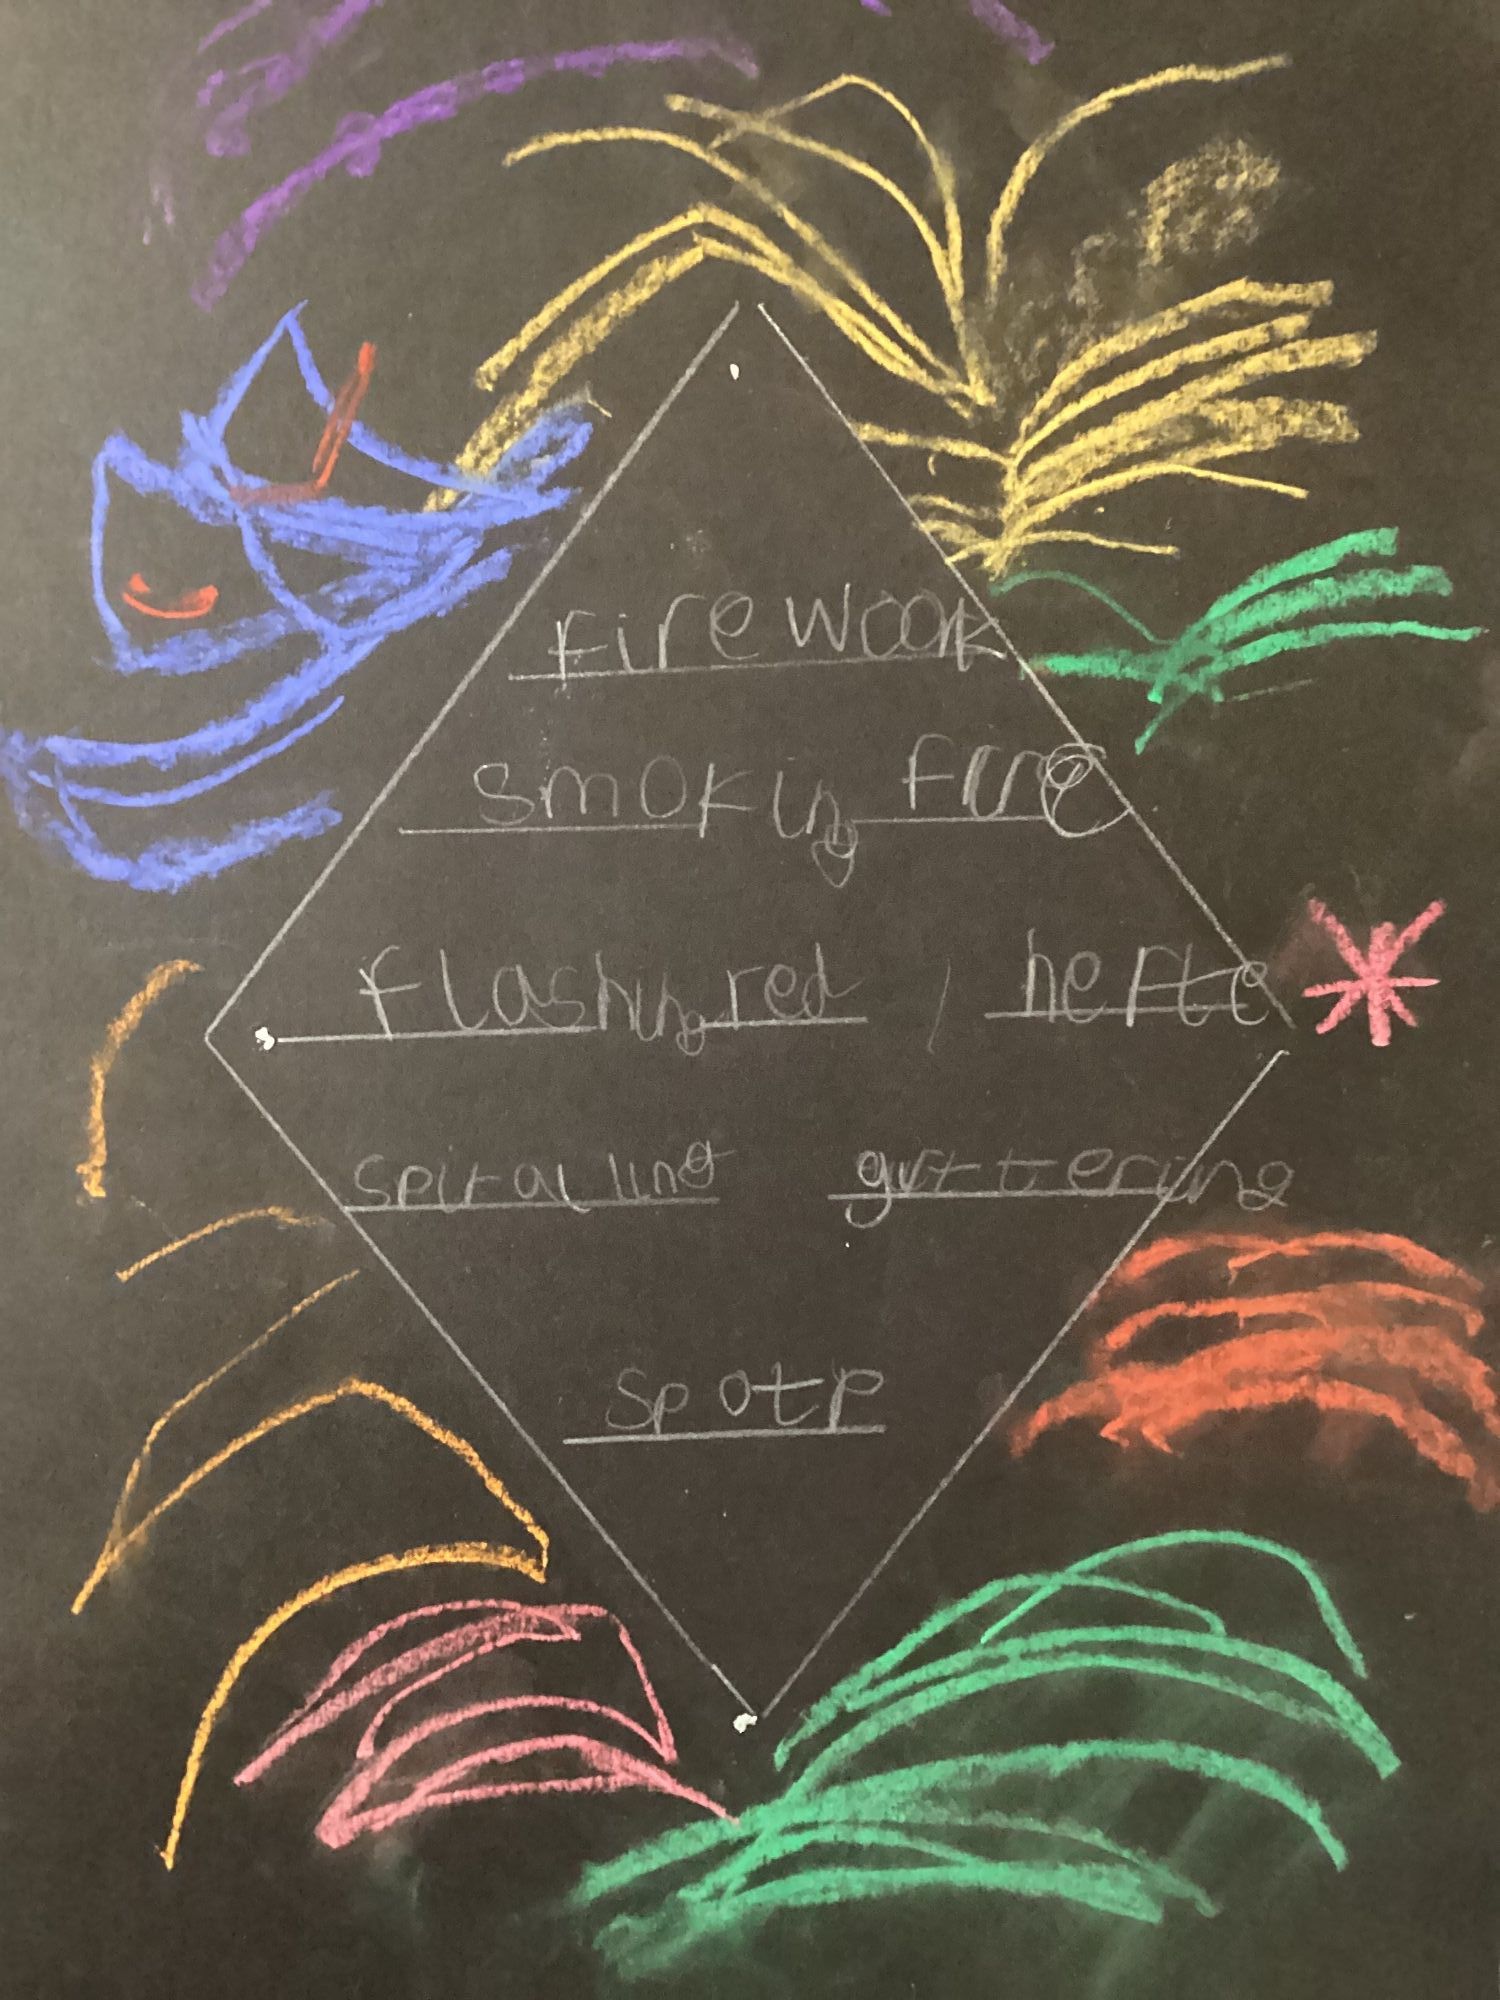 firewook
smoking fire
flashing red, hefte
spiralling guttering
spotp